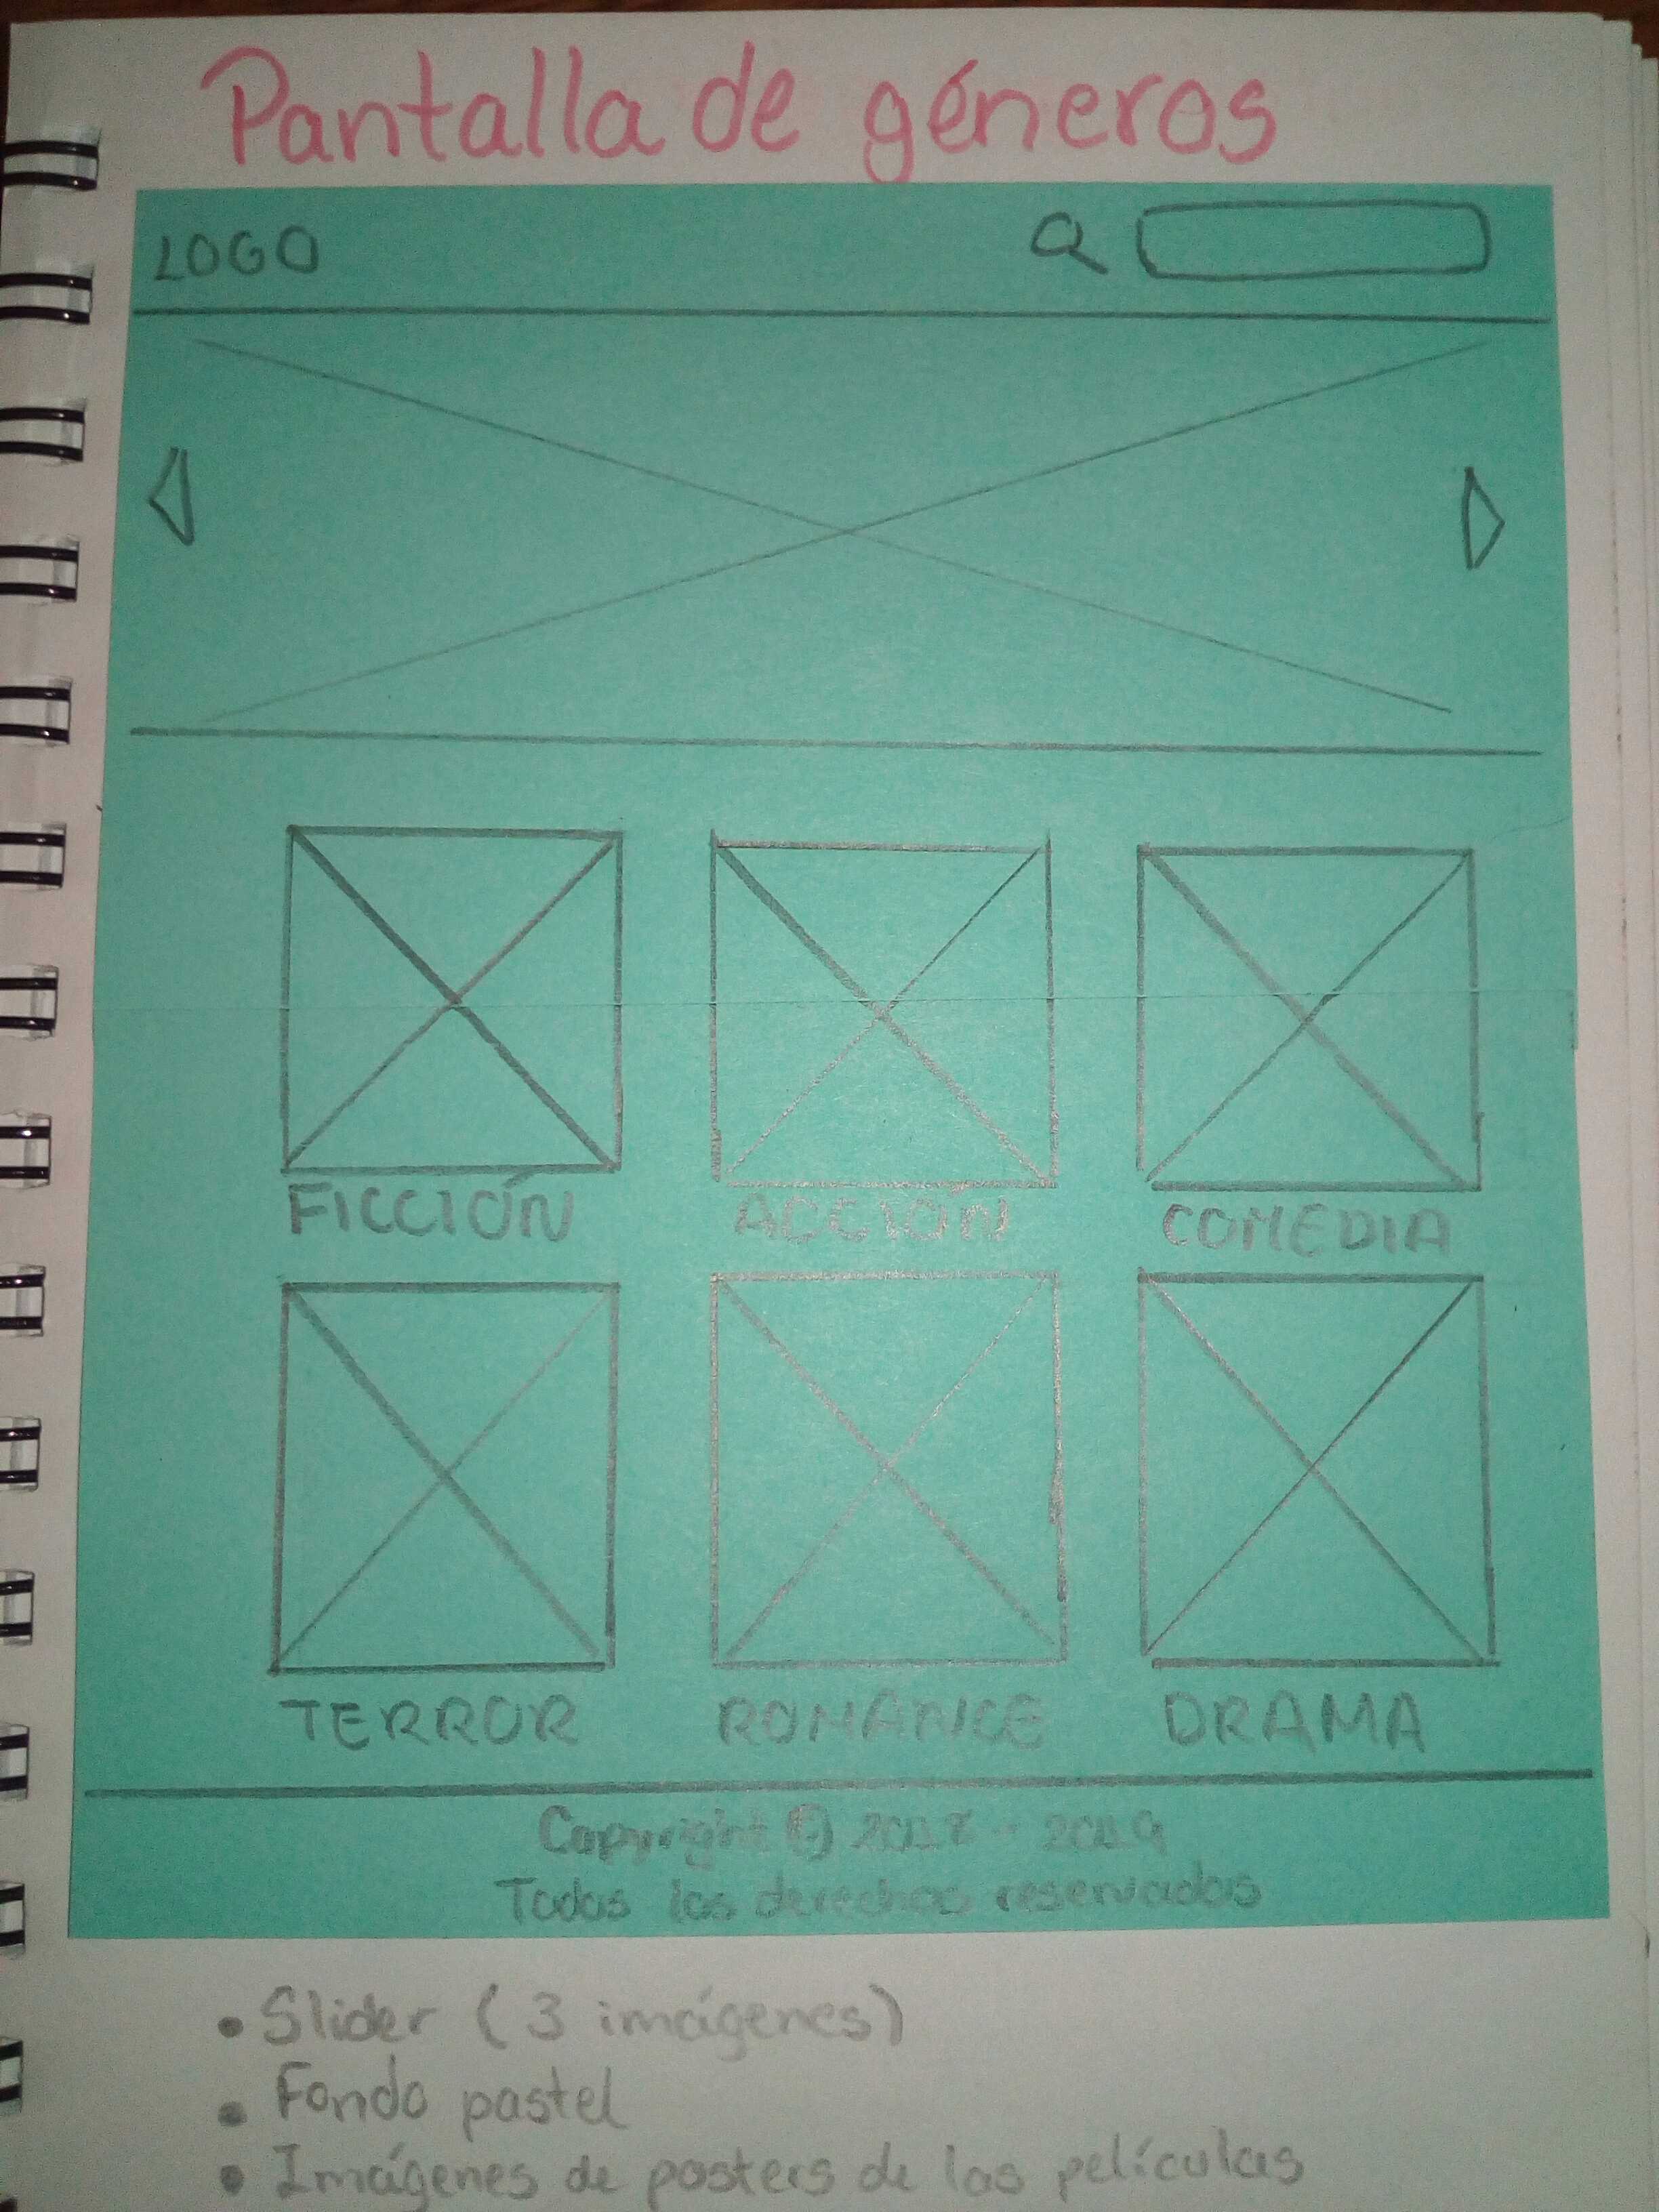 Pantalla de géneros
LOGO
FICCIÓN ACCIÓN COMEDIA
TERROR ROMANCE DRAMA
Copyright © 2018 - 2019
Todos los derechos reservados
• Slider (3 imágenes)
• Fondo pastel
• Imágenes de posters de las películas